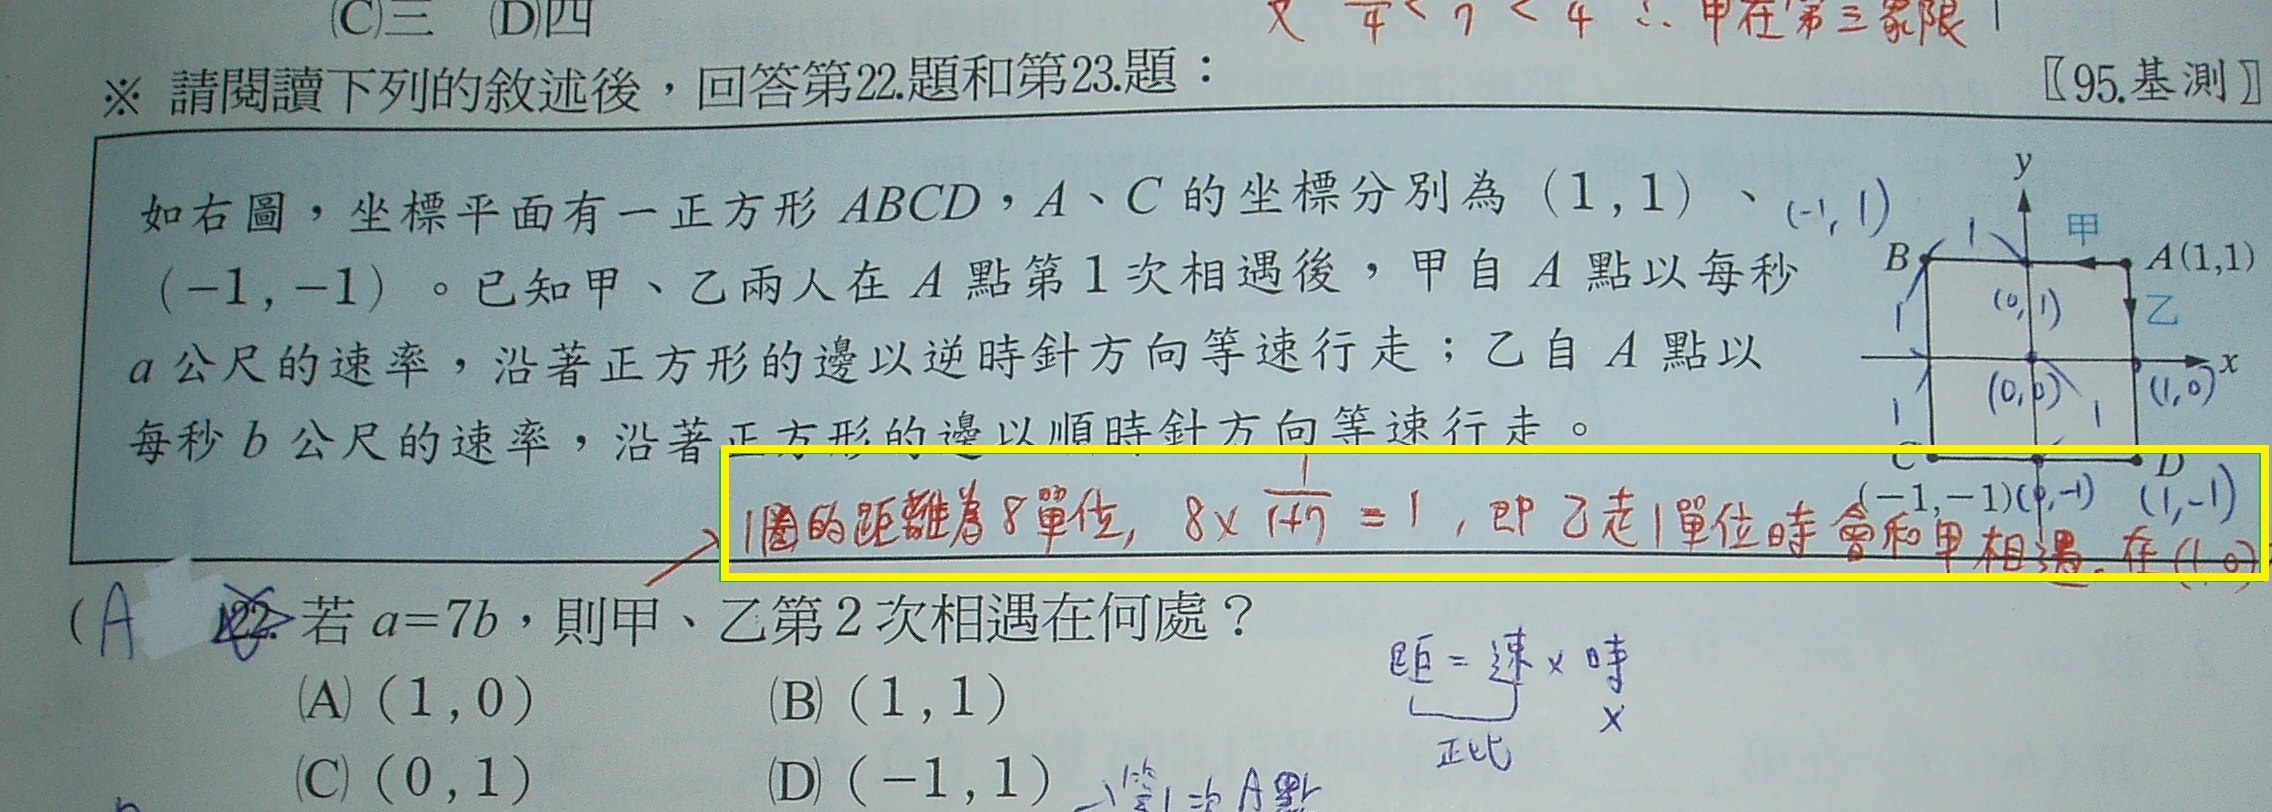 (C)三 (D)四
又 <7< ∴甲在第三象限
※ 請閱讀下列的敘述後，回答第22.題和第23.題：
〖95.基測〗
如右圖，坐標平面有一正方形ABCD，A、C的坐標分別為（1,1）、
（−1,−1）。已知甲、乙兩人在A點第1次相遇後，甲自A點以每秒
a公尺的速率，沿著正方形的邊以逆時針方向等速行走；乙自A點以
每秒b公尺的速率，沿著正方形的邊以順時針方向等速行走。
y
(-1,1)
1
甲
B
A(1,1)
1
(0,1)
乙
x
(0,0)
(1,0)
1
1
C
D
(−1,−1)(0,-1) (1,-1)
1圈的距離為8單位, 8×1/(1+7)=1, 即乙走1單位時會和甲相遇. 在(1,0)
(A 22. 若a=7b，則甲、乙第2次相遇在何處？
距=速×時
×
正比
(A)（1,0） (B)（1,1）
(C)（0,1） (D)（−1,1）
→第1次A點